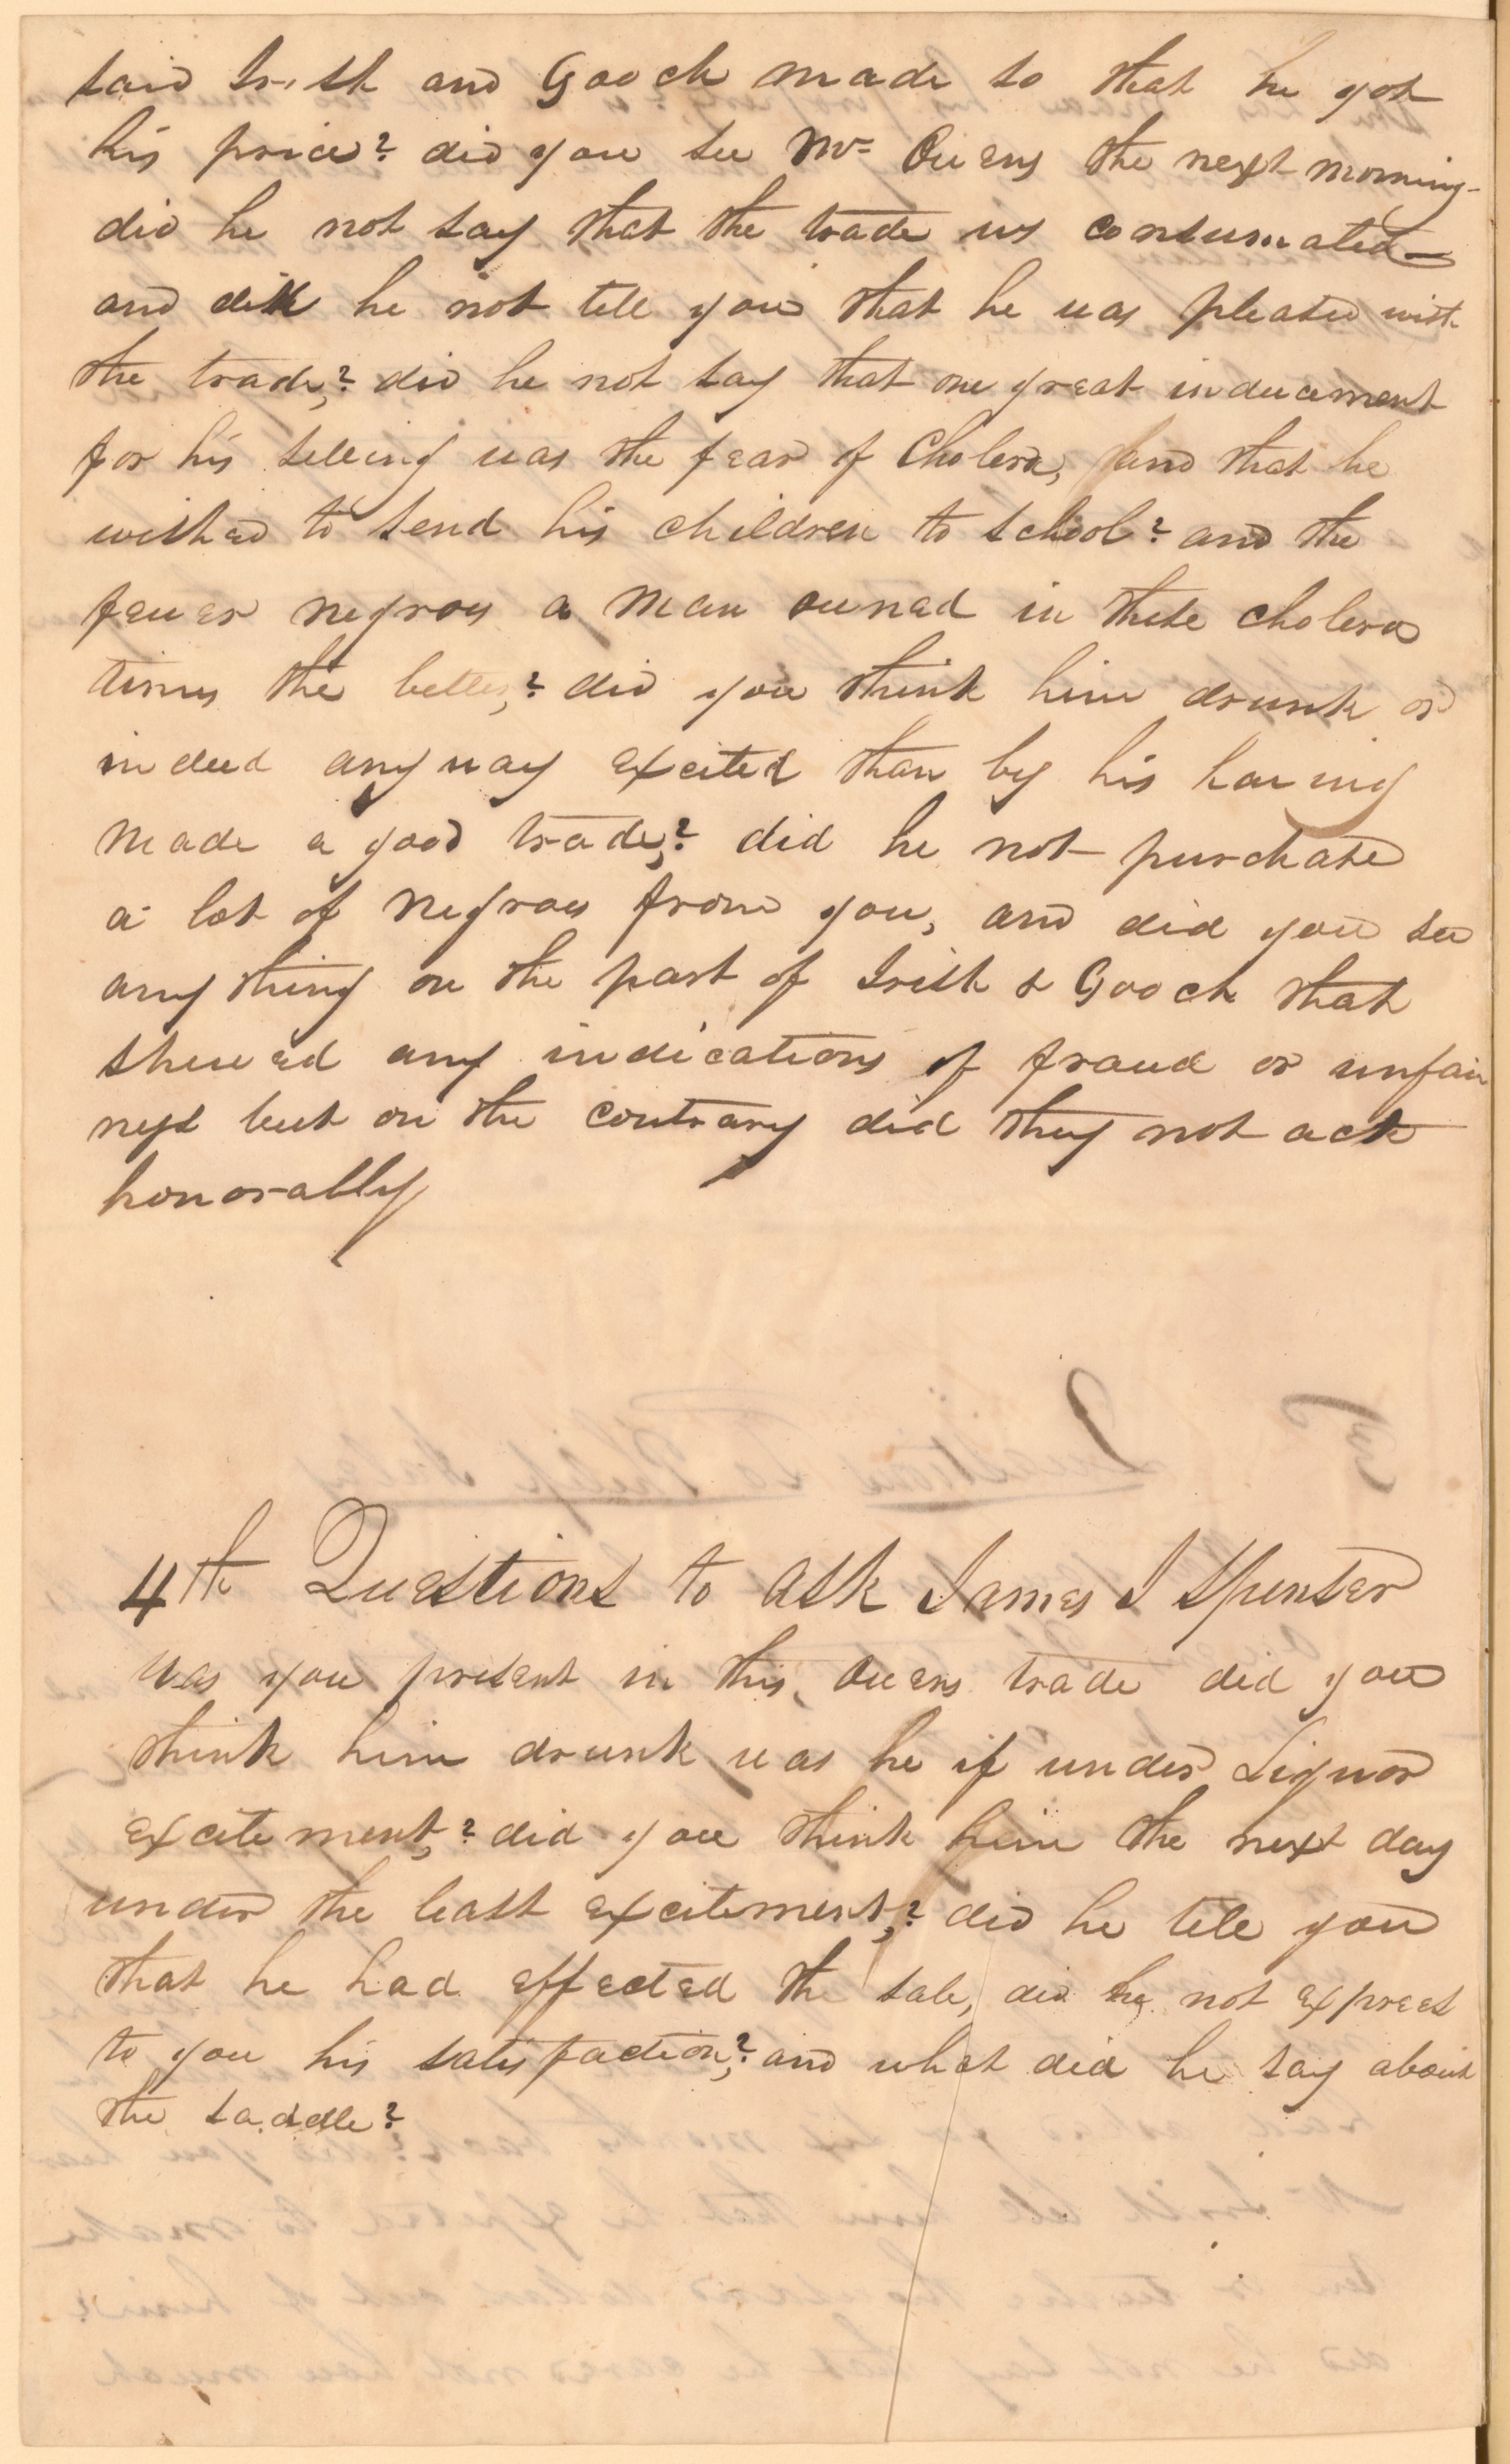 said Irish and Gooch made so that he got
his price? did you see Mr Owens the next morning-
did he not say that the trade us consumated
and did he not tell you that he was pleased with
the trade,? did he not say that one great inducement
for his selling was the fear of Cholera, and that he
wished to send his children to school? and the
fewer negroes a man owned in these cholera
times the better,? did you think him drunk or
indeed anyway excited than by his having
made a good trade,? did he not purchase
a lot of negroes from you, and did you see
any thing on the part of Irish & Gooch that
shewed any indications of fraud or unfair
ness but on the contrary did they not act
honorably
4th Questions to ask James I Spenser
was you present in this, Owens trade did you
think him drunk was he if under Liquor
excitement,? did you think him the next day
under the least excitement,? did he tell you
that he had effected the sale, did he not express
to you his satisfaction,? and what did he say about
the saddle?